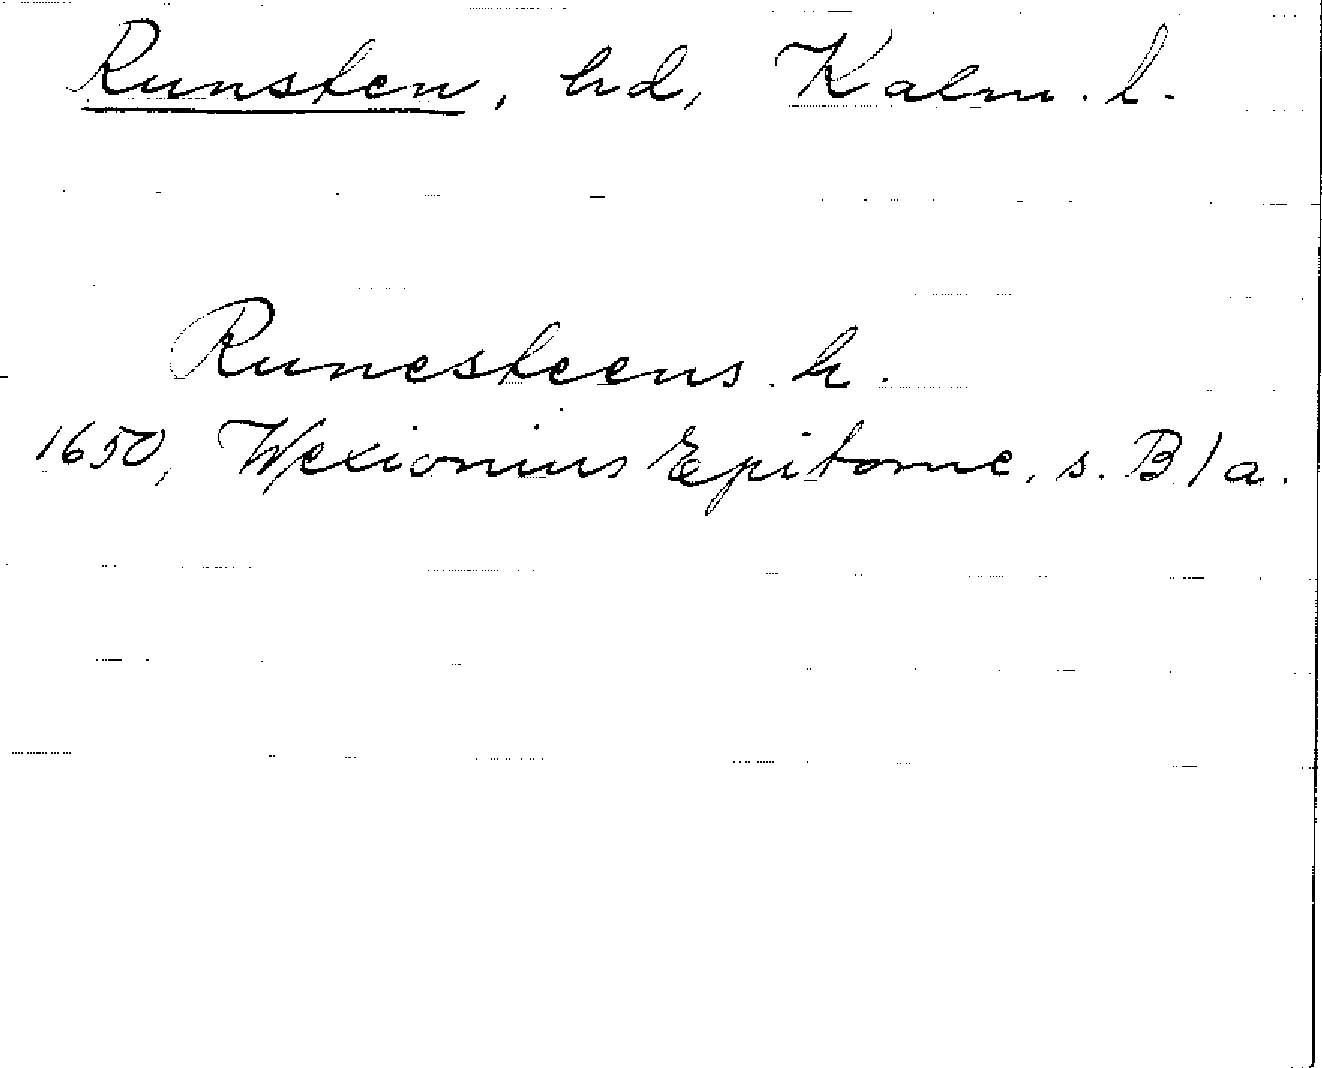 Runsten, hd, Kalm. l.
Runesteens h.
1650, Wexionius Epitome, s. B1a.